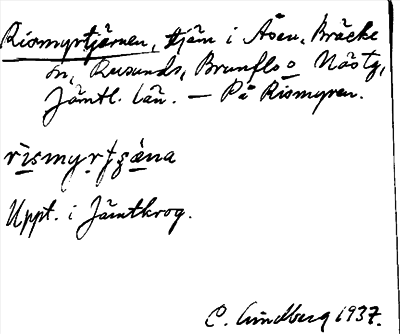 Rismyrtjärnen, tjärn i Åsen, Bräcke
sn, Revsunds, Brunflo o Näs tg,
Jämtl. län. — På Rismyren.
rismyrtʂäna
Uppt. i Jämtkrog.
C. Lindberg 1937.